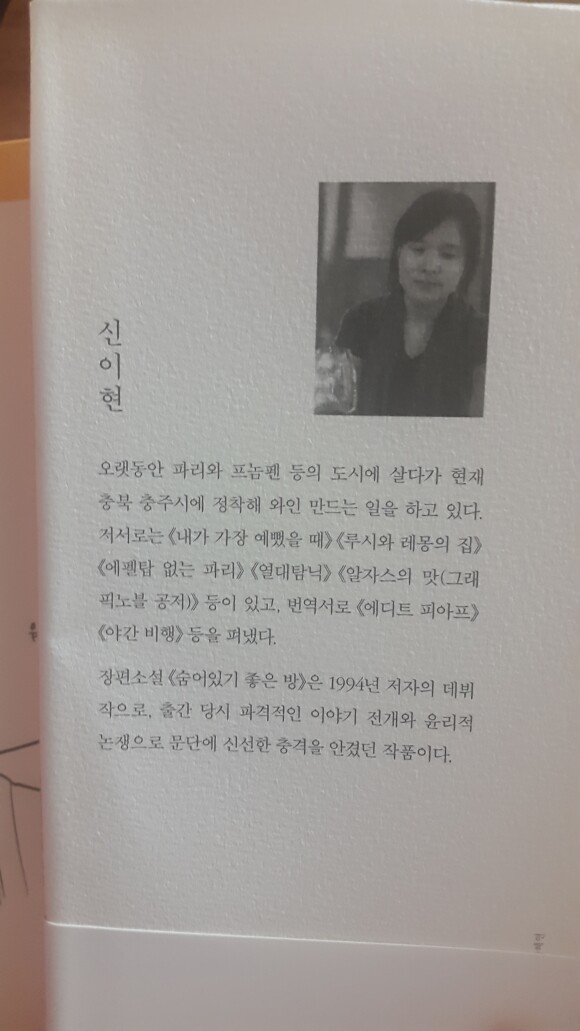 신이현
오랫동안 파리와 프놈펜 등의 도시에 살다가 현재
충북 충주시에 정착해 와인 만드는 일을 하고 있다.
저서로는 《내가 가장 예뻤을 때》 《루시와 레몽의 집》
《에펠탑 없는 파리》 《열대탐닉》 《알자스의 맛(그래
픽노블 공저)》 등이 있고, 번역서로 《에디트 피아프》
《야간 비행》 등을 펴냈다.
장편소설 《숨어있기 좋은 방》은 1994년 저자의 데뷔
작으로, 출간 당시 파격적인 이야기 전개와 윤리적
논쟁으로 문단에 신선한 충격을 안겼던 작품이다.